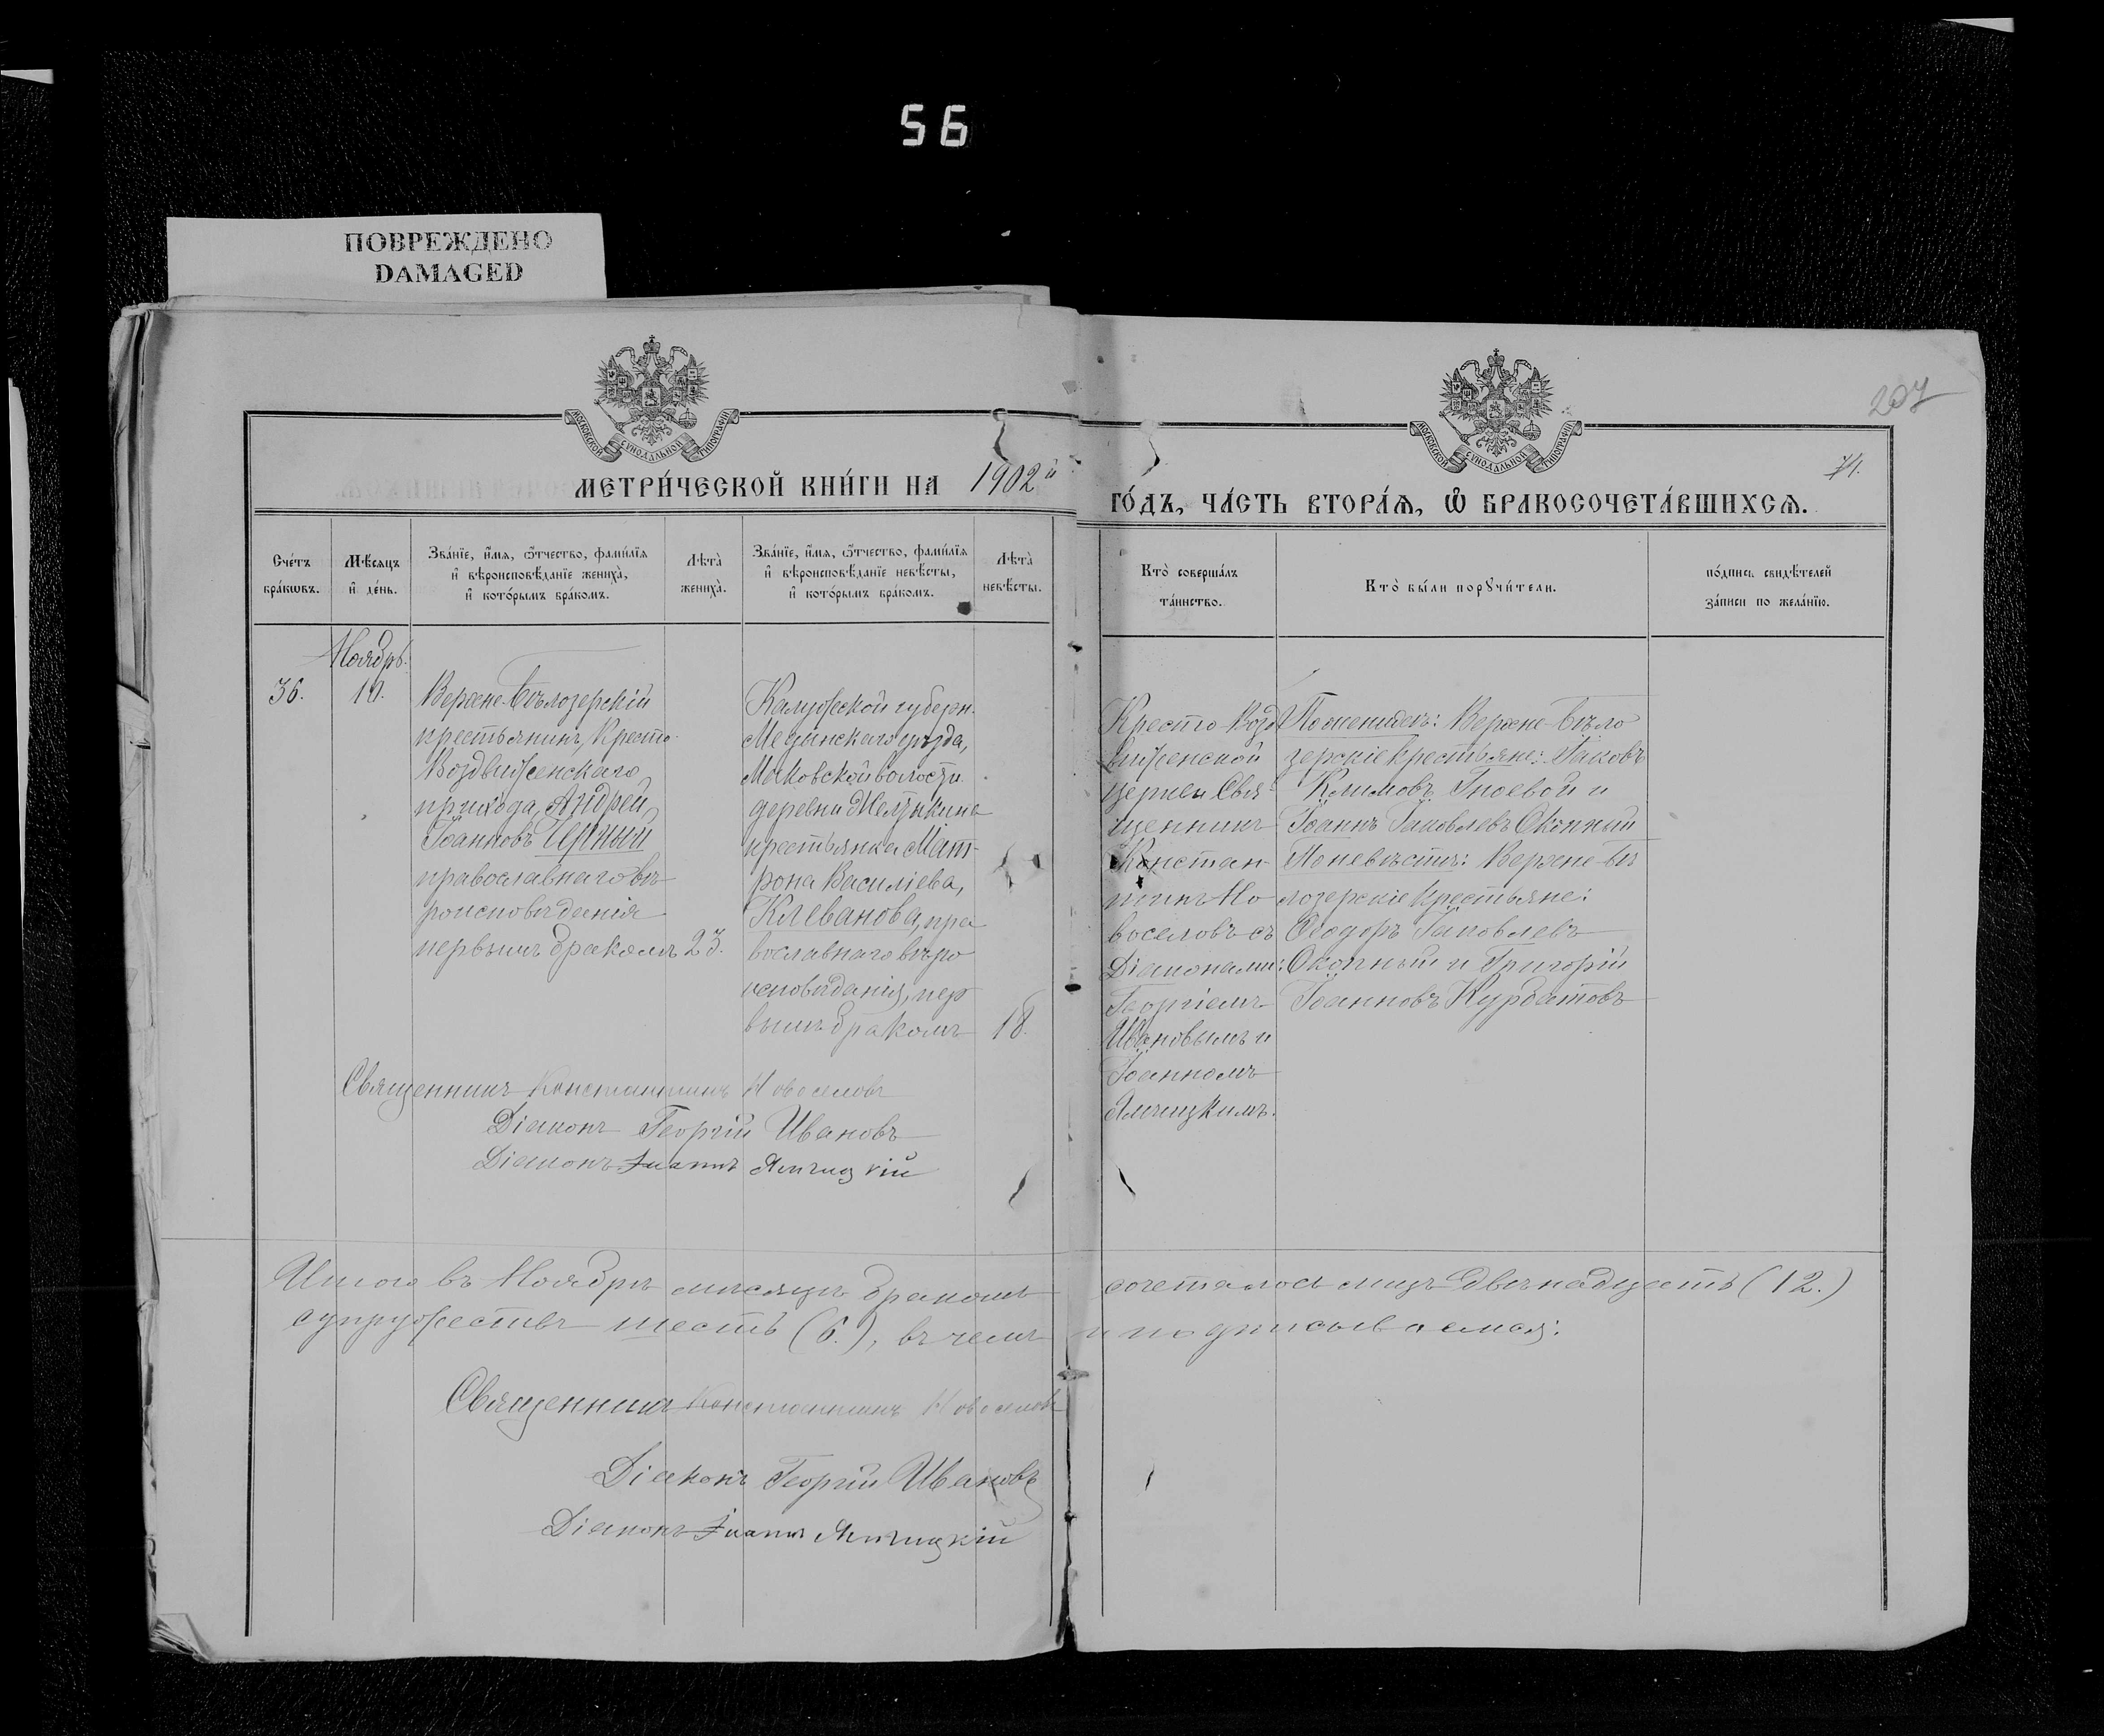 56
ПОВРЕЖДЕНО
DAMAGED
207
МОСКОВСКОЙ СѴНОДАЛЬНОЙ ТИПОГРАФІИ
МОСКОВСКОЙ СѴНОДАЛЬНОЙ ТИПОГРАФІИ
71.
МЕТРИ́ЧЕСКОЙ КНИ́ГИ НА 1902й
ГО́ДЪ, ЧА́СТЬ ВТОРА́Ѧ, Ѽ БРАКОСОЧЕТА́ВШИХСѦ.
Сче́тъ
бра́кѡвъ.
Мѣ́сяцъ
и҆ де́нь.
Зва́нїе, и҆́мя, ѻ҆́тчество, фами́лїя
и҆ вѣроисповѣ́данїе жениха̀,
и҆ кото́рымъ бра́комъ.
Лѣта̀
жениха̀.
Зва́нїе, и҆́мя, ѻ҆́тчество, фами́лїя
и҆ вѣроисповѣ́данїе невѣ́сты,
и҆ кото́рымъ бра́комъ.
Лѣта̀
невѣ́сты.
Кто̀ соверша́лъ
та́инство.
Кто̀ бы́ли порꙋчи́тели.
по́дпись свидѣ́телей
за́писи по жела́нїю.
Ноябрь.
36.
10.
Верхне-Бѣлозерскій
крестьянинъ, Кресто-
Воздвиженскаго
прихода, Андрей
Іоанновъ Черный
православнаго вѣ-
роисповѣданія
первымъ бракомъ
23.
Калужской губерн.
Медынскаго уѣзда,
Маковской волости
деревни
крестьянка Мат-
рона Василіева,
Клеванова, пра
вославнаго вѣро
исповѣданія, пер
вымъ бракомъ
18.
Кресто-Возд
виженской
церкви Свя
щенникъ
Констан-
тинъ Но
воселовъ съ
Діаконами:
Георгіемъ
Ивановымъ и
Іоанномъ
Ямчицкимъ.
По женихѣ: Верхне-Бѣло
зерскіе крестьяне: Іаковъ
Климовъ Гноевой и
Іоаннъ Іаковлевъ Окопный
По невѣстѣ: Верхне-Бѣ
лозерскіе крестьяне:
Ѳеодоръ Іаковлевъ
Окопный и Григорій
Іоанновъ Курбатовъ
Священникъ Константинъ Новоселовъ
Діаконъ Георгій Ивановъ
Діаконъ Іоаннъ Ямчицкій
Итого въ Ноябрѣ мѣсяцѣ бракомъ сочеталось лицъ двѣнадцать (12.)
супружествъ шесть (6.), въ чемъ и подписываемся:
Священникъ Константинъ Новоселовъ
Діаконъ Георгій Ивановъ
Діаконъ Іоаннъ Ямчицкій